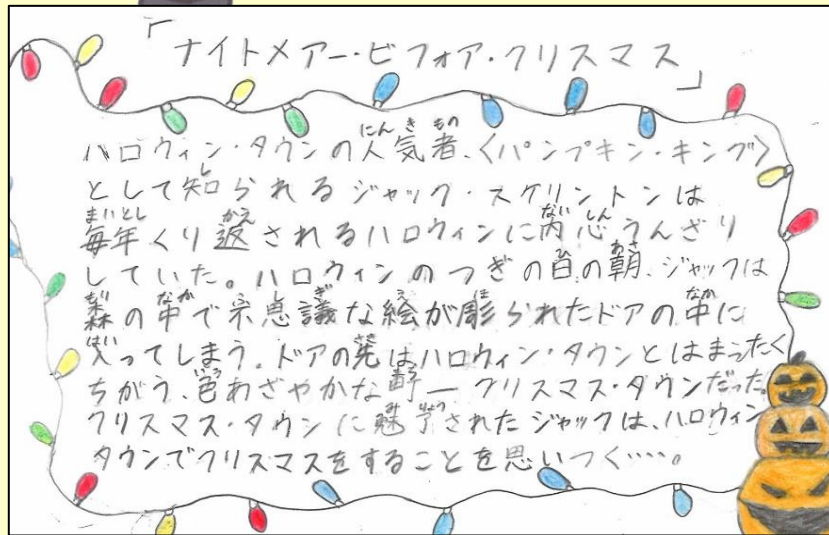 「ナイトメアー・ビフォア・クリスマス」
ハロウィン・タウンの人気者、〈パンプキン・キング〉
として知られるジャック・スケリントンは
毎年くり返されるハロウィンに内心うんざり
していた。ハロウィンのつぎの日の朝、ジャックは
森の中で不思議な絵が彫られたドアの中に
入ってしまう。ドアの先はハロウィン・タウンとはまったく
ちがう、色あざやかな町―クリスマス・タウンだった。
クリスマス・タウンに魅了されたジャックは、ハロウィン
タウンでクリスマスをすることを思いつく……。